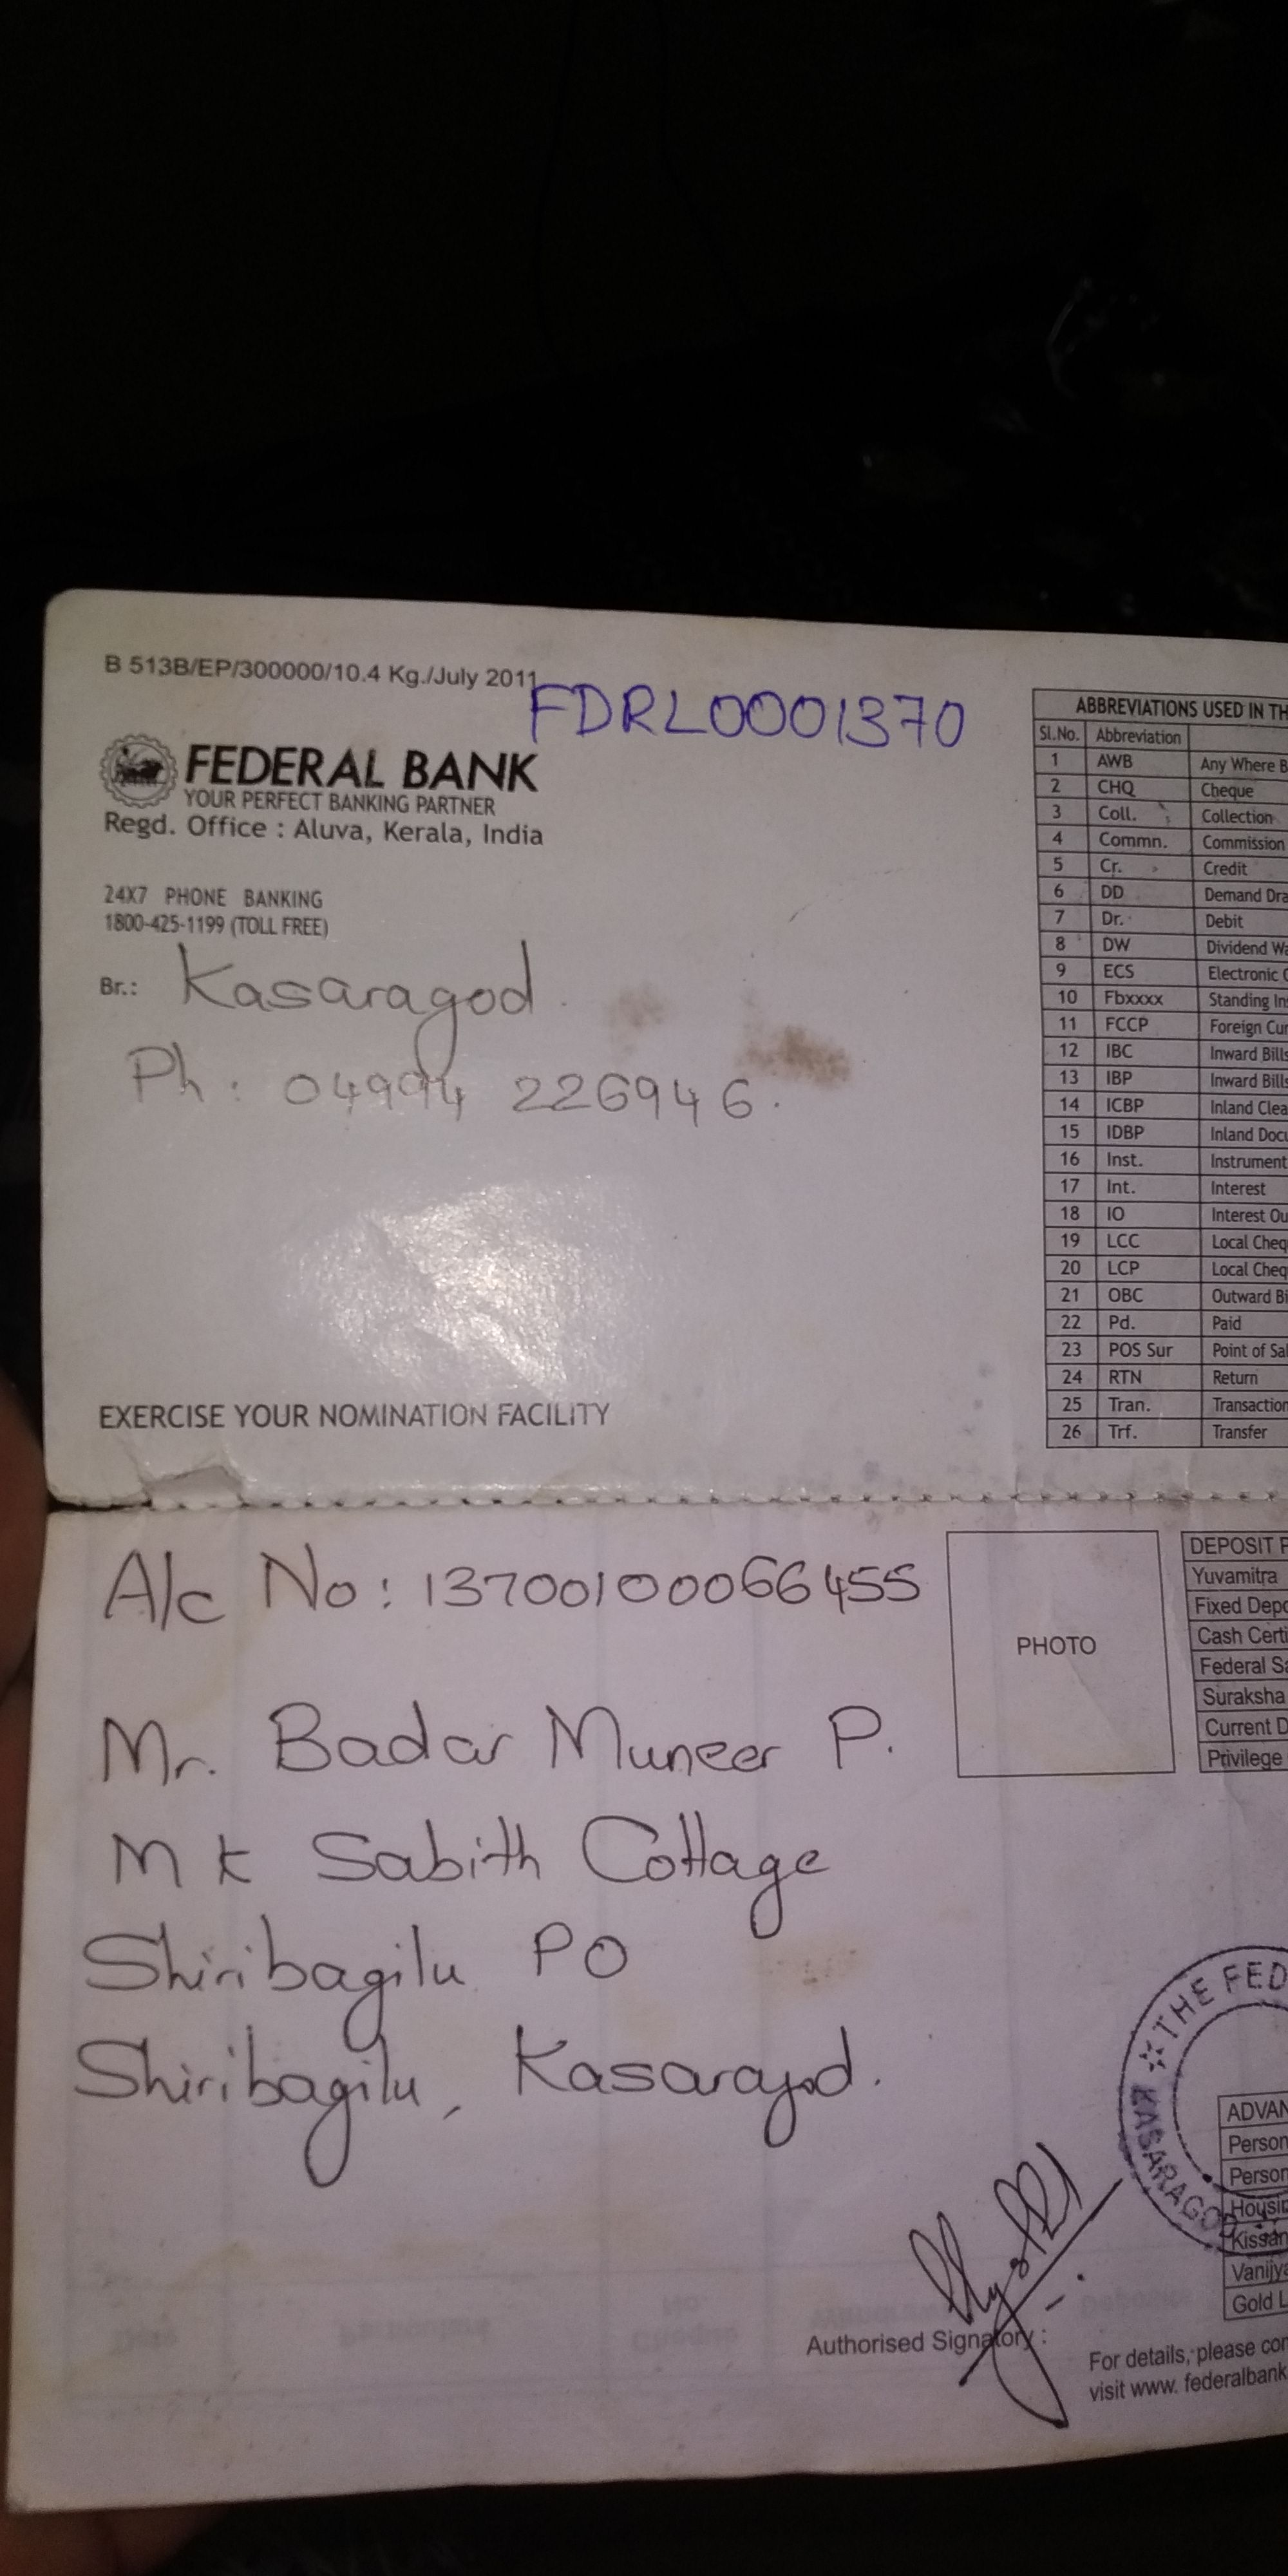 B 513B/EP/300000/10.4 Kg./July 2011
FDRL0001370
FEDERAL BANK
YOUR PERFECT BANKING PARTNER
Regd. Office : Aluva, Kerala, India
24X7 PHONE BANKING
1800-425-1199 (TOLL FREE)
Br.: Kasaragod.
Ph : 04994 226946.
EXERCISE YOUR NOMINATION FACILITY
ABBREVIATIONS USED IN TH
Sl.No. Abbreviation
1 AWB Any Where B
2 CHQ Cheque
3 Coll. Collection
4 Commn. Commission
5 Cr. Credit
6 DD Demand Dra
7 Dr. Debit
8 DW Dividend Wa
9 ECS Electronic C
10 Fbxxxx Standing Ins
11 FCCP Foreign Cur
12 IBC Inward Bills
13 IBP Inward Bills
14 ICBP Inland Clea
15 IDBP Inland Docu
16 Inst. Instrument
17 Int. Interest
18 IO Interest Ou
19 LCC Local Cheq
20 LCP Local Cheq
21 OBC Outward Bi
22 Pd. Paid
23 POS Sur Point of Sal
24 RTN Return
25 Tran. Transaction
26 Trf. Transfer
A/c No : 13700100066455
Mr. Badar Muneer P.
M K Sabith Cottage
Shiribagilu PO
Shiribagilu, Kasaragod.
PHOTO
DEPOSIT P
Yuvamitra
Fixed Depo
Cash Certi
Federal Sa
Suraksha
Current D
Privilege
THE FED
KASARAGOD
ADVAN
Person
Person
Housin
Kissan
Vanijya
Gold L
Authorised Signatory :
For details, please con
visit www. federalbank